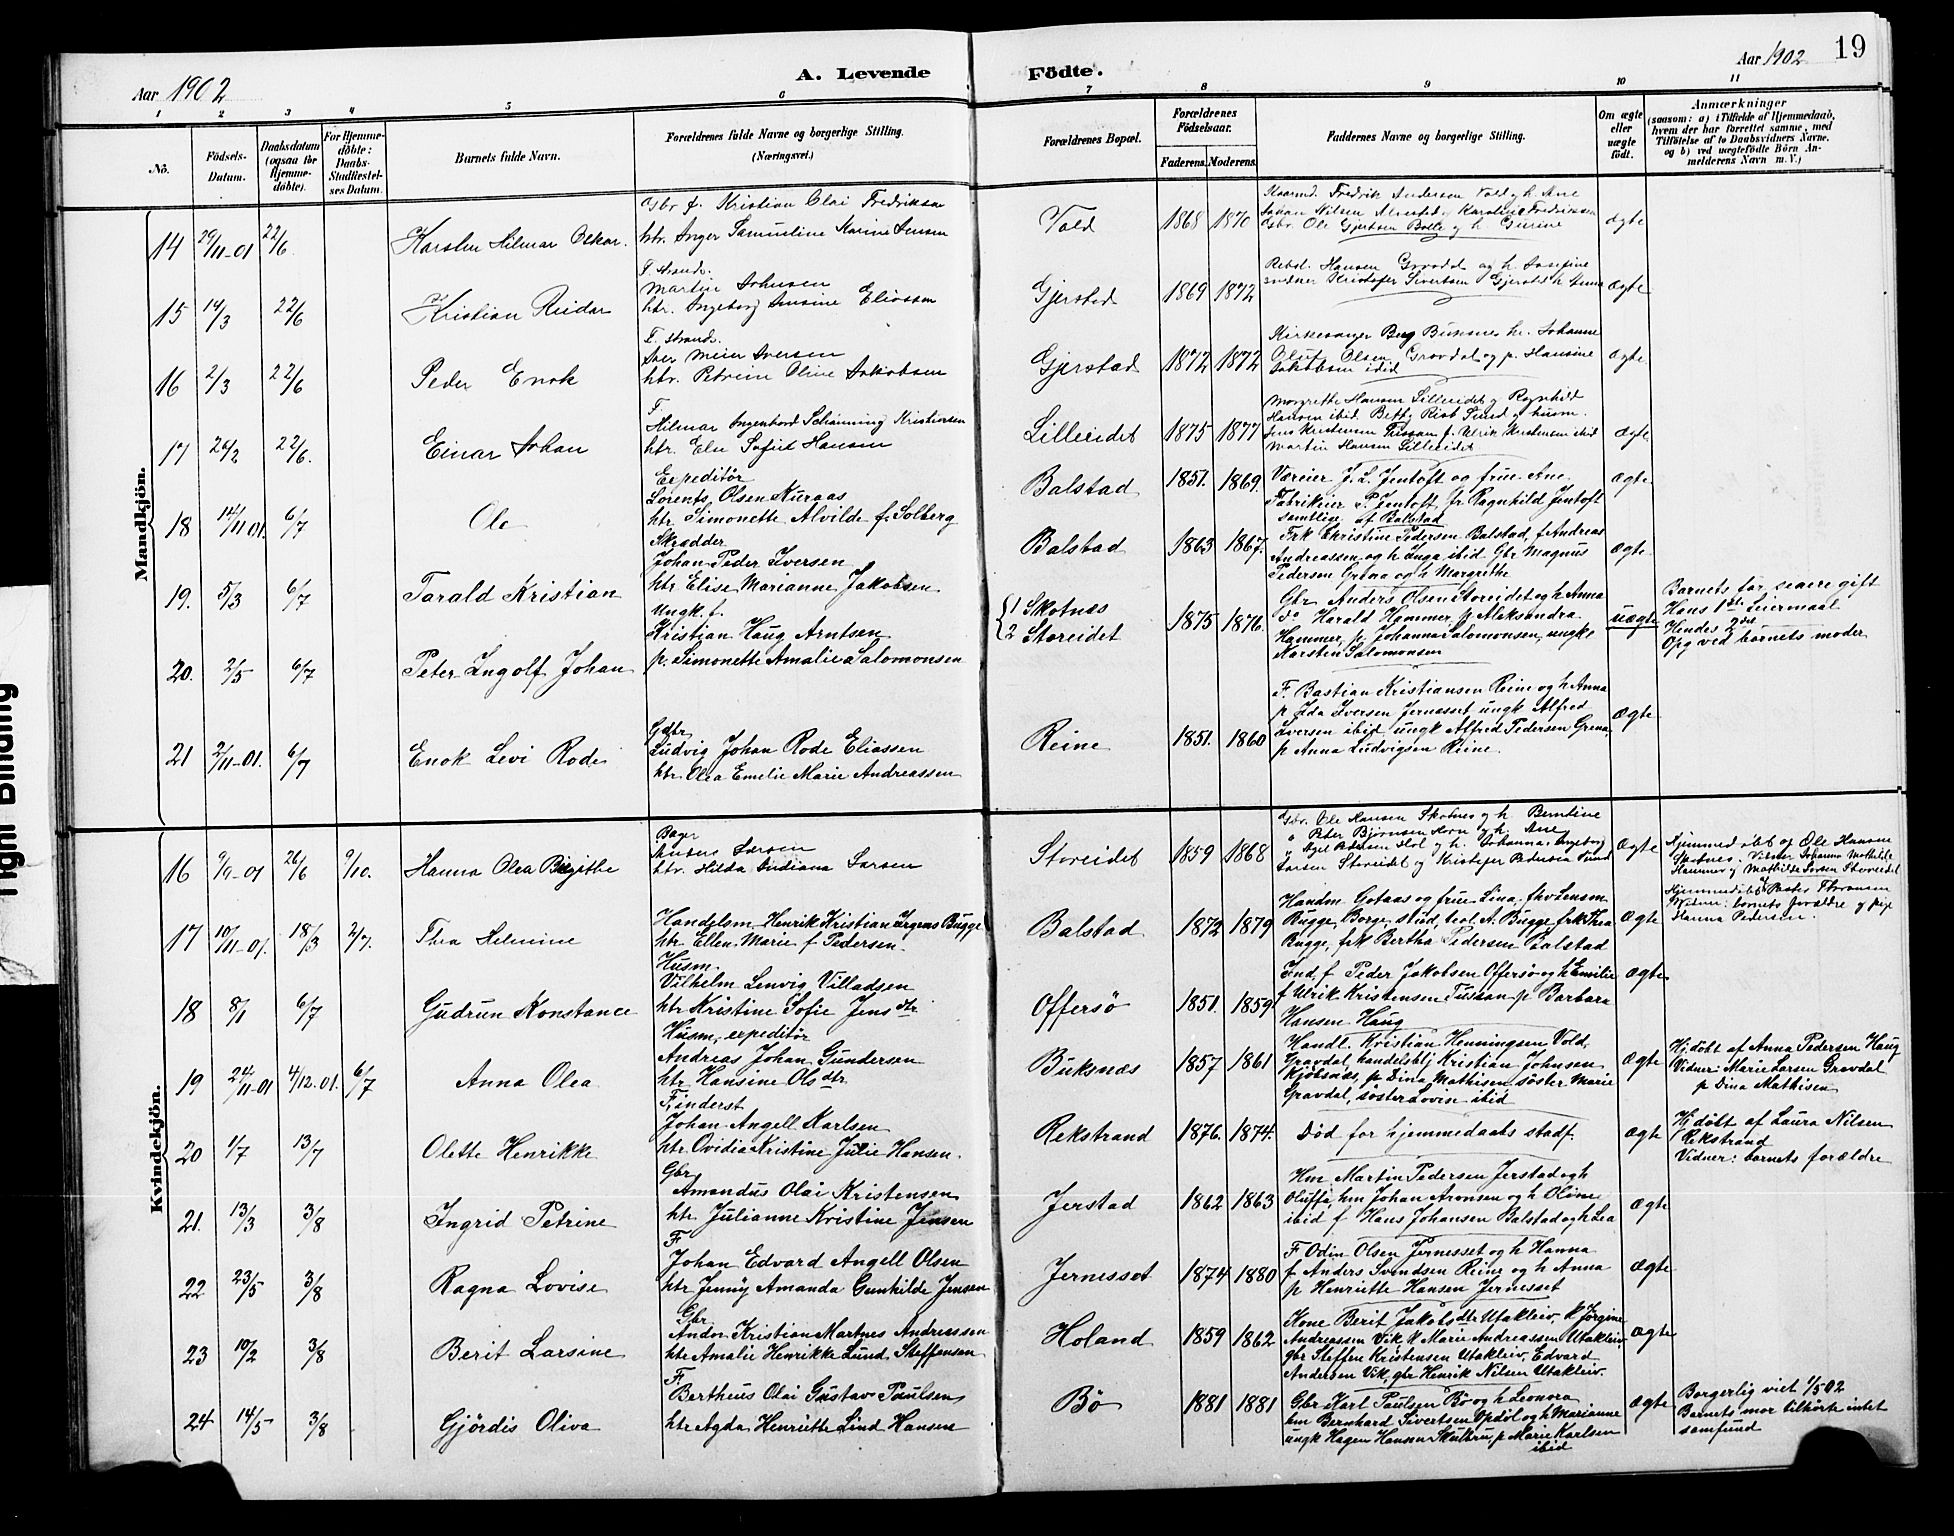 Aar 1902
A. Levende Födte.
Aar 1902
19
1 2 3 4 5 6 7 8 9 10 11
No.
Födsels-Datum.
Daabsdatum (ogsaa for Hjemme-döbte).
For Hjemme-döbte: Daabs-Stadfæstel-ses Datum.
Barnets fulde Navn.
Forældrenes fulde Navne og borgerlige Stilling. (Næringsvei.)
Forældrenes Bopæl.
Forældrenes Födselsaar.
Faderens. Moderens.
Faddernes Navne og borgerlige Stilling.
Om ægte eller uægte födt.
Anmærkninger
(saasom: a) i Tilfælde af Hjemmedaab, hvem der har forrettet samme, med Tilföielse af to Daabsvidners Navne, og b) ved uægtefödte Börn Anmelderens Navn m. V.)
Mandkjön.
14 29/11-01 22/6 Karsten Hilmar Oskar.
Gbr f. Kristian Olai Fredriksen
htr. Inger Samueline Karine Jensen
Vold 1868 1870
Fredrik Andersen Vold og h. Ane
Johan Nilsen Alvestad Karoline Fredriksen
Gbr. Ole Gjertsen Bolle og h Gurine
ægte
15 14/3 22/6 Kristian Reidar
F. strands.
Martin Johnsen
htr. Ingeborg Ansine Eliassen
Gjerstad 1869 1872
Hansen Gravdal og h. Josefine
Kristofer Sivertsen Gjerstad h Anna
ægte
16 2/3 22/6 Peder Enok
F. strands.
Iver Meier Iversen
htr. Petrine Oline Jakobsen
Gjerstad 1872 1872
Kirkesanger Berg Buksnes h. Johanne
Oluf Olsen Gravdal og p. Hansine
Jakobsen ibid
ægte
17 24/2 22/6. Einar Johan
F
Hilmar Ingenhard Schanning Kristiansen
htr. Elen Sofie Hansen
Lilleeidet 1875 1877
Margrethe Hansen Lilleeidet og Ragnhild
Hansen ibid Betty Rist Sund og husm.
Jens Kristensen Tussan f. Ulrik Kristensen ibid
Martin Hansen Lilleeidet
ægte
18 14/11 01. 6/7 Ole
Expeditör
Lorents Olsen Kuraas
htr Simonette Alvilde f. Solberg
Balstad 1851. 1869.
Væreier J. L. Jentoft og frue Ane.
Fabrikeier P. Jentoft, fr. Ragnhild Jentoft
samtlige af Balstad
ægte.
19. 5/3 6/7 Tarald Kristian
Skrædder
Johan Peder Iversen
htr Elise Marianne Jakobsen
Balstad 1863 1867.
Frk Christine Pedersen Balstad, f Andreas
Andreassen og h Inga ibid. Gbr Magnus
Pedersen Grena og h Margrethe
ægte.
20. 2/5 6/7 Peter Ingolf Johan
Ungk. f.
Kristian Haug Arntsen
p. Simonette Amalie Salomonsen
1 Skotnæs
2 Storeidet
1875 1876.
Gbr Anders Olsen Storeidet og h Anna
do Harald Hammer, p Aleksandra
Hammer, p. Johanna Salomonsen, ungk
Karsten Salomonsen
uægte
Barnets far senere gift
Hans 1ste Leiermaal
Hendes 2det
Opg ved barnets moder
21 2/11-01. 6/7 Enok Levi Rode
Gdbr
Ludvig Johan Rode Eliassen
htr. Olea Emelie Marie Andreassen
Reine 1851. 1860
F. Bastian Kristiansen Reine og h Anna
p Ida Iversen Jernæsset ungk Alfred
Iversen ibid ungk Alfred Pedersen Grena,
p Anna Ludvigsen Reine.
ægte.
Kvindekjön.
16 9/9-01 26/6 9/10. Hanna Olea Birgithe
Bager
Anders Larsen
htr. Hilda Indiana Larsen
Storeidet 1859 1868
Gbr. Ole Hansen Skotnes og h. Berntine
" Peter Björnsen Horn og h. Ane
" Aget Pedersen Hol og h. Johanna, Ingeborg
Larsen Storeidet og Kristofer Pedersen Sund
ægte
Hjemmedöbt af Ole Hansen
Skotnes. Vidner Johanna Mathilde
Hammer og Mathilde Larsen Storeidet
17 10/11-01. 18/3 2/7. Thea Helmine
Handelsm. Henrik Kristian Jørgens Bugge
htr Ellen Marie f Pedersen.
Balstad 1872 1879
Handm. Gotaas og frue Lina, fhv Lensm.
Bugge, Borge, stud. teol. A. Bugge, frk Thea
Bugge, frk Bertha Pedersen Balstad
ægte
Hjemmedöbt Pastor Thoresen
Vidner: barnets forældre og pige
Hanna Pedersen.
18 8/1 6/7 Gudrun Konstance
Husm.
Vilhelm Lenvig Villadsen
htr Kristine Sofie Jensdtr
Offersö 1851. 1859
Ind. f Peder Jakobsen Offersö og h Emilie
f Ulrik Kristensen Tussan p Barbara
Hansen Haug
ægte
19 24/11-01 4/12.01. 6/7 Anna Olea
Husm, expeditör
Andreas Johan Gundersen
htr Hansine Olsdtr.
Buksnæs 1857 1861
Handl. Kristian Henningsen Vold,
Gravdal, handelsbtj Kristian Johnsen
Kjöbsnæs, p Dina Mathisen söster Marie
Gravdal, söster Lovin ibid
ægte
Hjdöbt af Anna Pedersen Haug
Vidner: Marie Larsen Gravdal
p Dina Mathisen
20 1/7 13/7 Olette Henrikke
F, inderst
Johan Angell Karlsen
htr Ovidia Kristine Julie Hansen.
Rekstrand 1876. 1874.
Död før hjemmedaabs stadf.
ægte
Hjdöbt af Laura Nilsen
Rekstrand
Vidner: barnets forældre
21. 13/3 3/8 Ingrid Petrine
Gbr
Amandus Olai Kristensen
htr Julianne Kristine Jensen
Jerstad 1862 1863
Hm Martin Pedersen Jerstad og h
Oluffa, hm Johan Aronsen og h Oline
ibid f Hans Johansen Balstad og h Lea
ægte
22 23/5 3/8 Ragna Lovise
F
Johan Edvard Angell Olsen
htr Jenny Amanda Gunhilde Jensen
Jernesset 1874 1880
F Odin Olsen Jernesset og h Hanna
f Anders Svendsen Reine og h Anna
p Henriette Hansen Jernesset
ægte
23 10/2 3/8 Berit Larsine
Gbr
Andor Kristian Martnes Andreassen
htr Amalie Henrikke Lund Steffensen
Holand 1859 1862
Kone Berit Jakobsdtr Utakleiv, K Jörgine
Andreassen Vik K Marie Andreassen Utakleiv,
gbr Steffen Kristensen Utakleiv, Edvard
Andersen Vik, gbr Henrik Nilsen Utakleiv.
ægte
24 14/5 3/8 Gjördis Oliva
F.
Bertheus Olai Gustav Paulsen
htr Agda Henriette Lind Hansen
Bö 1881 1881
Gbr Karl Paulsen Bö og h Leonora
hm Bernhard Sivertsen Opdöl og h Marianne
ungk Hagen Hansen Skulbru, p Marie Karlsen
ibid
ægte
Borgerlig viet 1/5 02
Barnets mor tilhörte intet
samfund